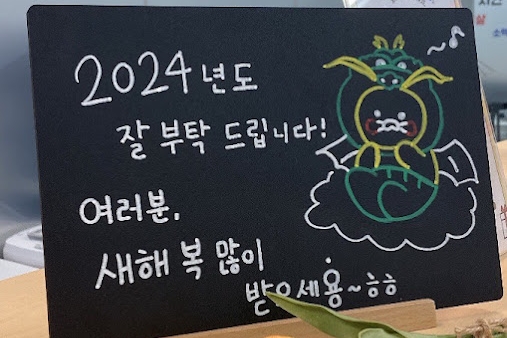 2024년도
잘 부탁 드립니다!
여러분.
새해 복 많이
받으세용~ㅎㅎ